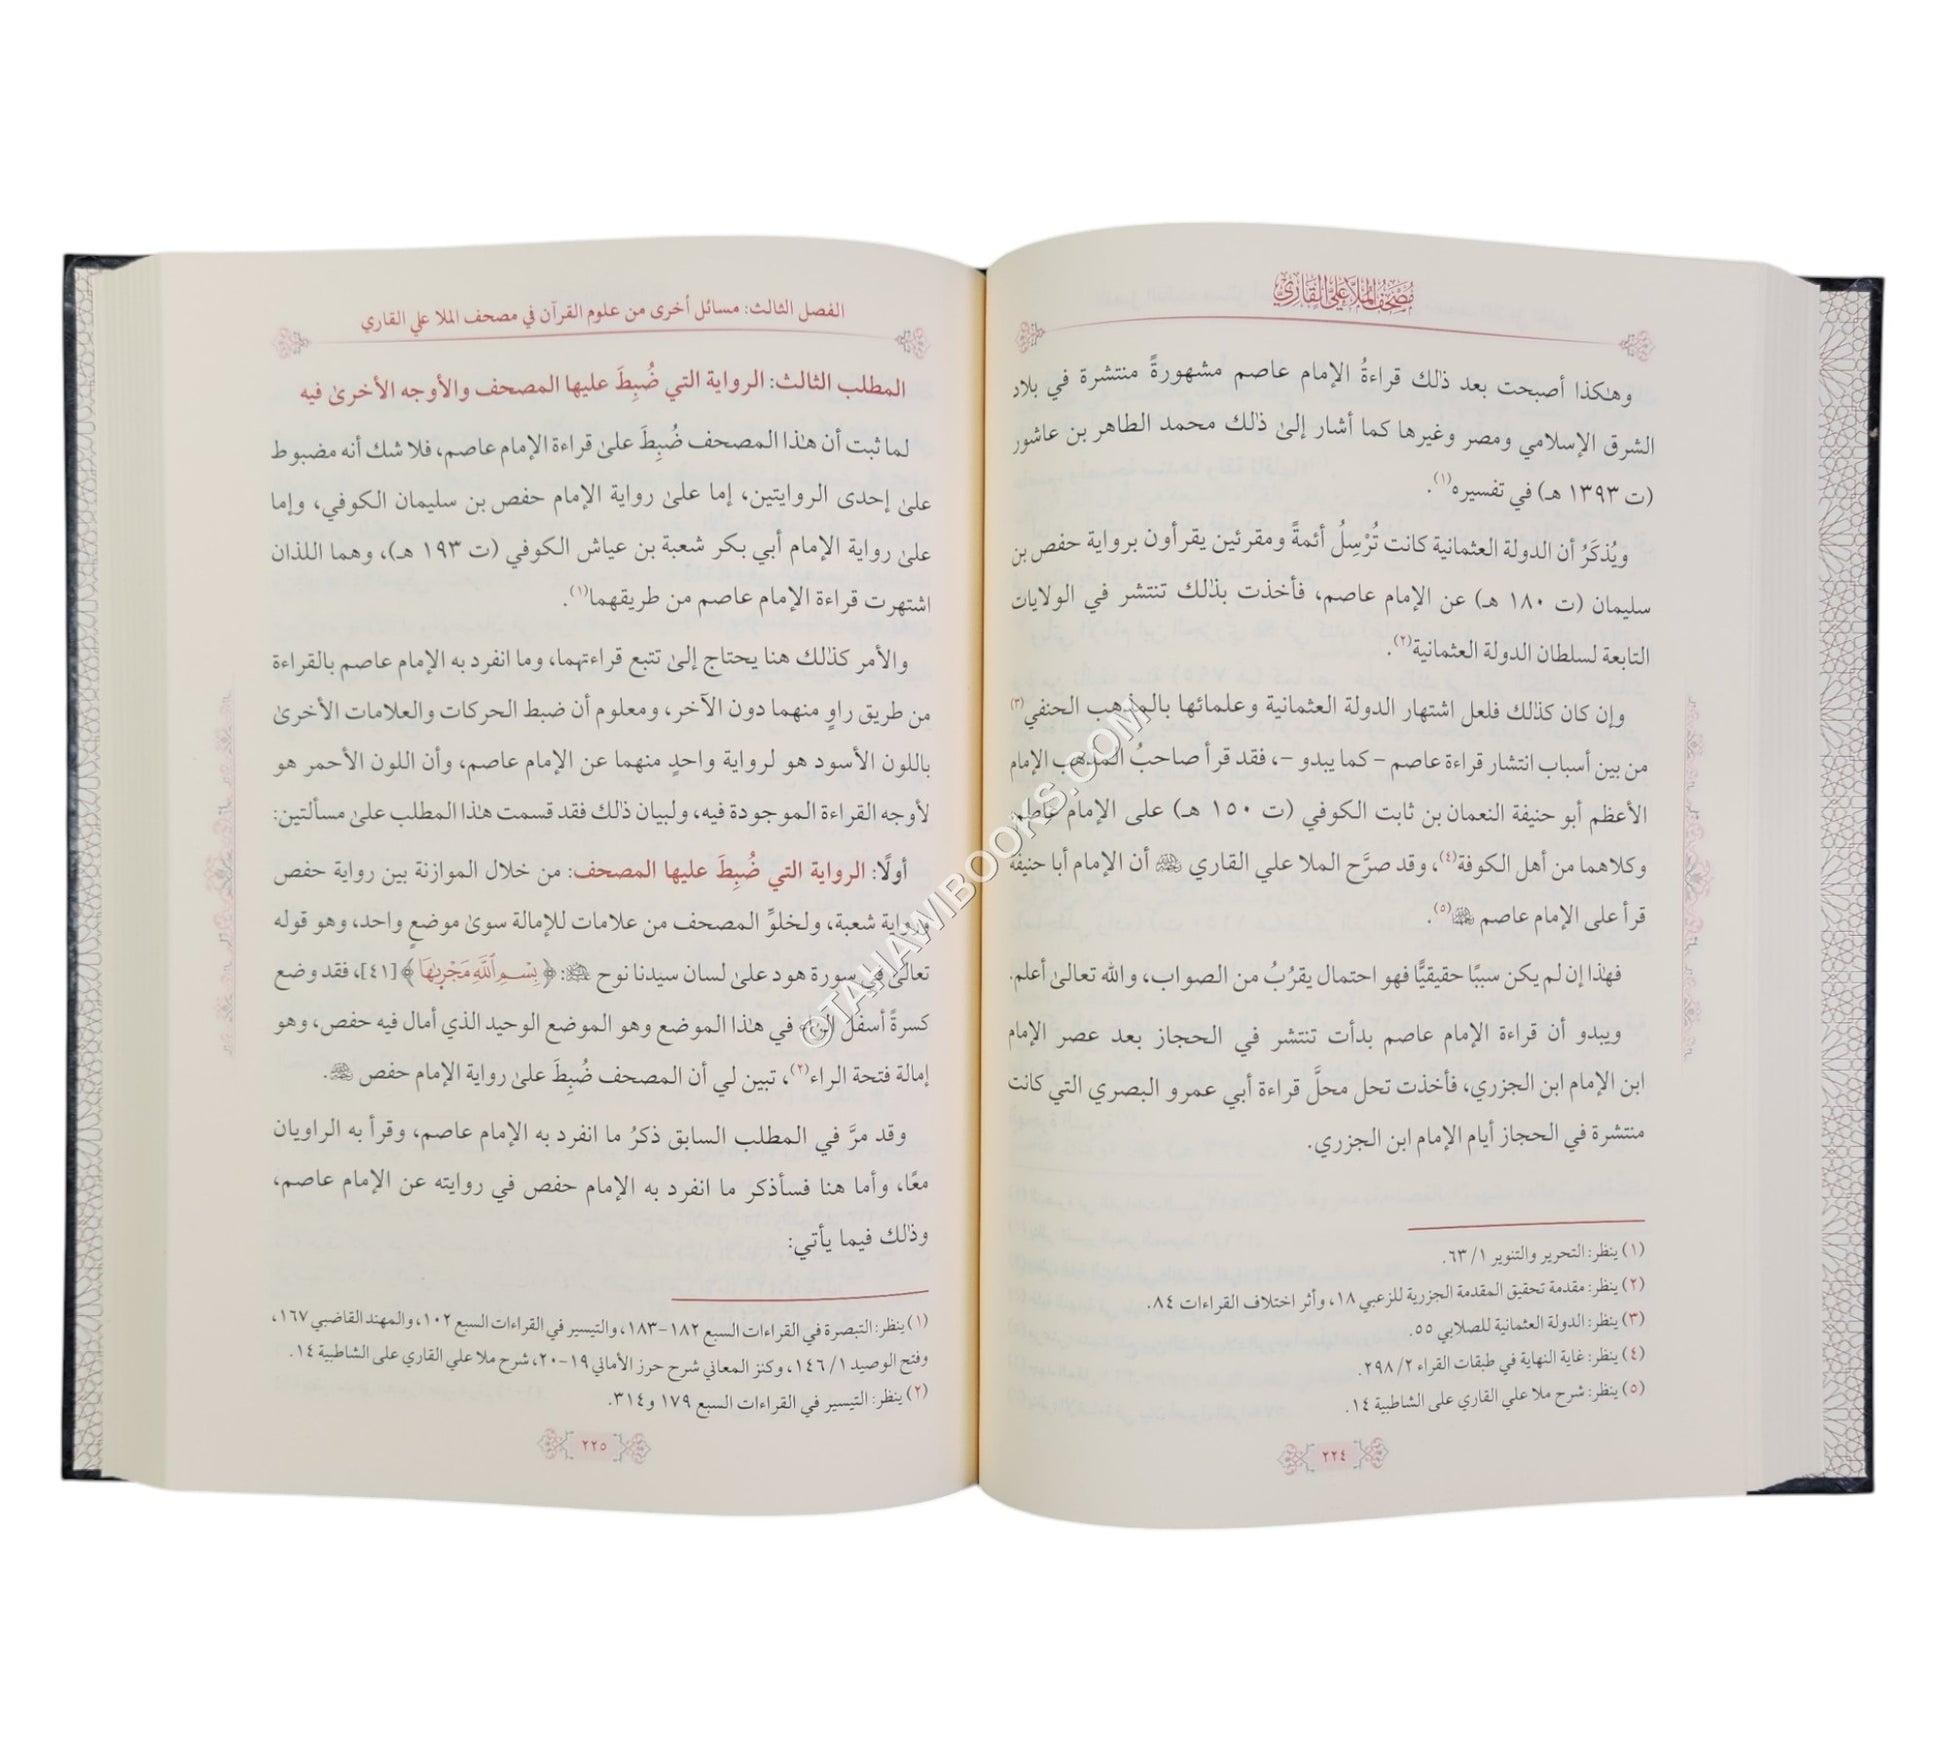 مصحف الملا علي القاري
وهكذا أصبحت بعد ذلك قراءةُ الإمام عاصم مشهورةً منتشرة في بلاد
الشرق الإسلامي ومصر وغيرها كما أشار إلىٰ ذلك محمد الطاهر بن عاشور
(ت ١٣٩٣ هـ) في تفسيره(١).
ويُذكَرُ أن الدولة العثمانية كانت تُرْسِلُ أئمةً ومقرئين يقرأون برواية حفص بن
سليمان (ت ١٨٠ هـ) عن الإمام عاصم، فأخذت بذٰلك تنتشر في الولايات
التابعة لسلطان الدولة العثمانية(٢).
وإن كان كذٰلك فلعل اشتهار الدولة العثمانية وعلمائها بالمذهب الحنفي(٣)
من بين أسباب انتشار قراءة عاصم – كما يبدو –، فقد قرأ صاحبُ المذهب الإمام
الأعظم أبو حنيفة النعمان بن ثابت الكوفي (ت ١٥٠ هـ) على الإمام عاصم،
وكلاهما من أهل الكوفة(٤)، وقد صرَّح الملا علي القاري أن الإمام أبا حنيفة
قرأ على الإمام عاصم (٥).
فهٰذا إن لم يكن سببًا حقيقيًّا فهو احتمال يقرُبُ من الصواب، والله تعالىٰ أعلم.
ويبدو أن قراءة الإمام عاصم بدأت تنتشر في الحجاز بعد عصر الإمام
ابن الإمام ابن الجزري، فأخذت تحل محلَّ قراءة أبي عمرو البصري التي كانت
منتشرة في الحجاز أيام الإمام ابن الجزري.
(١) ينظر: التحرير والتنوير ١/ ٦٣.
(٢) ينظر: مقدمة تحقيق المقدمة الجزرية للزعبي ١٨، وأثر اختلاف القراءات ٨٤.
(٣) ينظر: الدولة العثمانية للصلابي ٥٥.
(٤) ينظر: غاية النهاية في طبقات القراء ٢/ ٢٩٨.
(٥) ينظر: شرح ملا علي القاري على الشاطبية ١٤.
٢٢٤
الفصل الثالث: مسائل أخرى من علوم القرآن في مصحف الملا علي القاري
المطلب الثالث: الرواية التي ضُبِطَ عليها المصحف والأوجه الأخرىٰ فيه
لما ثبت أن هٰذا المصحف ضُبِطَ علىٰ قراءة الإمام عاصم، فلا شك أنه مضبوط
علىٰ إحدى الروايتين، إما علىٰ رواية الإمام حفص بن سليمان الكوفي، وإما
علىٰ رواية الإمام أبي بكر شعبة بن عياش الكوفي (ت ١٩٣ هـ)، وهما اللذان
اشتهرت قراءة الإمام عاصم من طريقهما(١).
والأمر كذٰلك هنا يحتاج إلىٰ تتبع قراءتهما، وما انفرد به الإمام عاصم بالقراءة
من طريق راوٍ منهما دون الآخر، ومعلوم أن ضبط الحركات والعلامات الأخرىٰ
باللون الأسود هو لرواية واحدٍ منهما عن الإمام عاصم، وأن اللون الأحمر هو
لأوجه القراءة الموجودة فيه، ولبيان ذٰلك فقد قسمت هٰذا المطلب علىٰ مسألتين:
أولًا: الرواية التي ضُبِطَ عليها المصحف: من خلال الموازنة بين رواية حفص
ورواية شعبة، ولخلوِّ المصحف من علامات للإمالة سوىٰ موضعٍ واحد، وهو قوله
تعالىٰ في سورة هود علىٰ لسان سيدنا نوح ﷺ: ﴿بِسْمِ ٱللَّهِ مَجْر۪ىٰهَا﴾ [٤١]، فقد وضع
كسرةً أسفل الراء في هٰذا الموضع وهو الموضع الوحيد الذي أمال فيه حفص، وهو
إمالة فتحة الراء(٢)، تبين لي أن المصحف ضُبِطَ علىٰ رواية الإمام حفص.
وقد مرَّ في المطلب السابق ذكرُ ما انفرد به الإمام عاصم، وقرأ به الراويان
معًا، وأما هنا فسأذكر ما انفرد به الإمام حفص في روايته عن الإمام عاصم،
وذٰلك فيما يأتي:
(١) ينظر: التبصرة في القراءات السبع ١٨٢-١٨٣، والتيسير في القراءات السبع ١٠٢، والمهند القاضبي ١٦٧،
وفتح الوصيد ١/ ١٤٦، وكنز المعاني شرح حرز الأماني ١٩-٢٠، شرح ملا علي القاري على الشاطبية ١٤.
(٢) ينظر: التيسير في القراءات السبع ١٧٩ و٣١٤.
٢٢٥
©TAHAWIBOOKS.COM